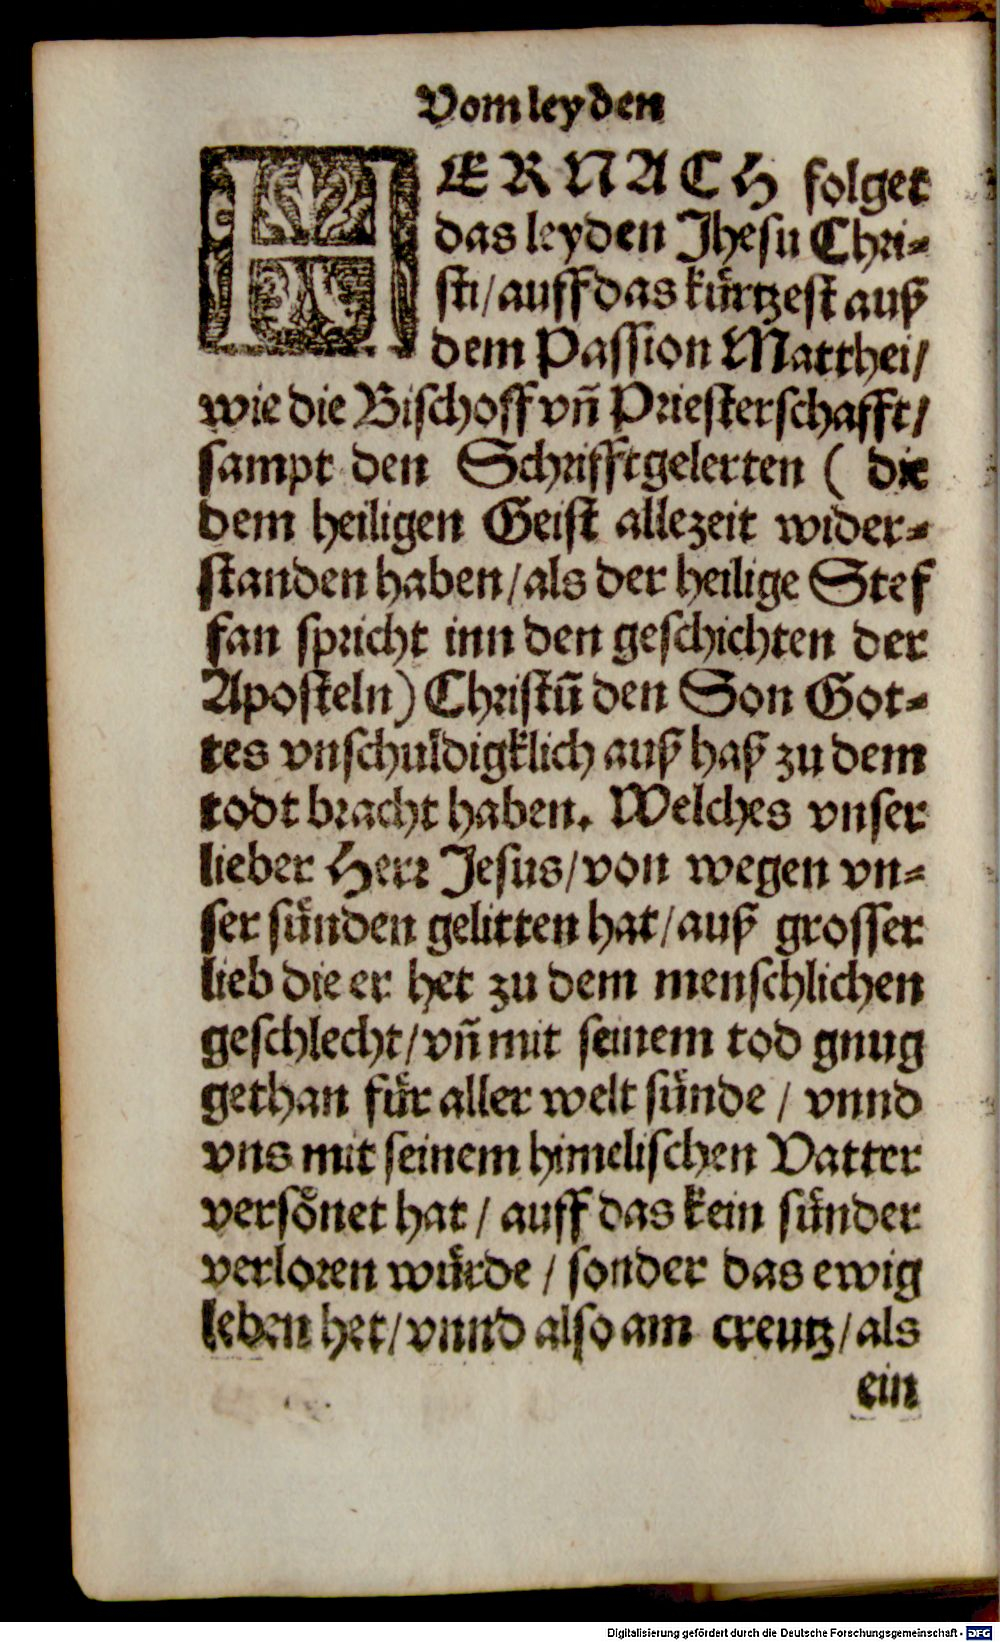 Vom leyden
HERNACH folget
das leyden Jhesu Chri⸗
sti/ auff das kuͤrtzest auß
dem Passion Matthei/
wie die Bischoff vñ Priesterschafft/
sampt den Schrifftgelerten ( die
dem heiligen Geist allezeit wider⸗
standen haben/ als der heilige Stef
fan spricht inn den geschichten der
Aposteln) Christū den Son Got⸗
tes vnschuldigklich auß haß zu dem
todt bracht haben. Welches vnser
lieber Herr Jesus/ von wegen vn⸗
ser suͤnden gelitten hat/ auß grosser
lieb die er het zu dem menschlichen
geschlecht/ vñ mit seinem tod gnug
gethan fuͤr aller welt suͤnde / vnnd
vns mit seinem himelischen Vatter
versoͤnet hat / auff das kein suͤnder
verloren wuͤrde / sonder das ewig
leben het/ vnnd also am creutz/ als
ein
Digitalisierung gefördert durch die Deutsche Forschungsgemeinschaft - DFG